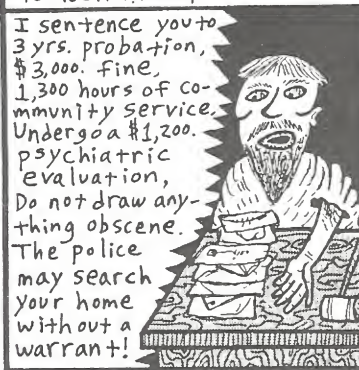 I sentence you to
3 yrs. probation,
$3,000. fine,
1,300 hours of co-
mmunity service,
Undergo a $1,200.
psychiatric
evaluation,
Do not draw any-
thing obscene.
The police
may search
your home
without a
warrant!